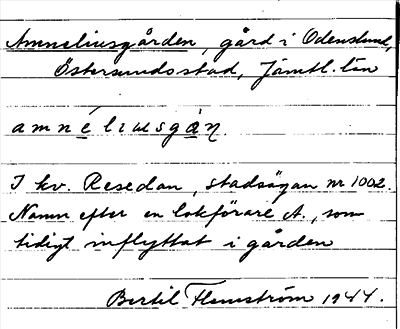 Amneliusgården, gård i Odenslund,
Östersunds stad, Jämtl. län
amnéliusgán̥.
I kv. Resedan, stadsägan nr 1002.
Namn efter en lokförare A., som
tidigt inflyttat i gården
Bertil Flemström 1944.